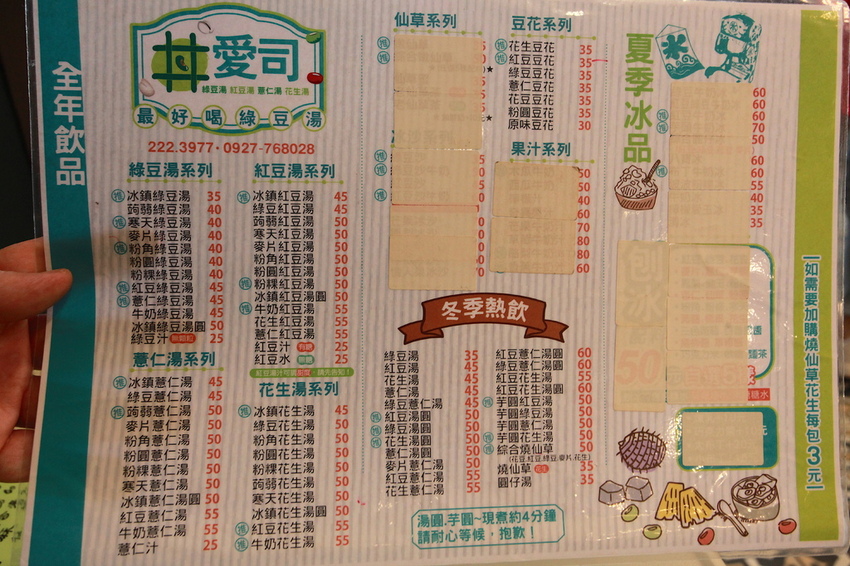 全年飲品
井 愛司
綠豆湯 紅豆湯 薏仁湯 花生湯
最好喝綠豆湯
222.3977・0927-768028
綠豆湯系列
推 冰鎮綠豆湯 35
蒟蒻綠豆湯 40
推 寒天綠豆湯 40
麥片綠豆湯 40
推 粉角綠豆湯 40
粉圓綠豆湯 40
粉粿綠豆湯 40
推 紅豆綠豆湯 45
推 薏仁綠豆湯 45
牛奶綠豆湯 45
冰鎮綠豆湯圓 50
綠豆汁 25
薏仁湯系列
推 冰鎮薏仁湯 45
綠豆薏仁湯 45
推 蒟蒻薏仁湯 50
麥片薏仁湯 50
粉角薏仁湯 50
粉圓薏仁湯 50
粉粿薏仁湯 50
寒天薏仁湯 50
冰鎮薏仁湯圓 50
紅豆薏仁湯 55
牛奶薏仁湯 55
薏仁汁 25
紅豆湯系列
推 冰鎮紅豆湯 45
綠豆紅豆湯 45
蒟蒻紅豆湯 50
寒天紅豆湯 50
麥片紅豆湯 50
粉角紅豆湯 50
粉圓紅豆湯 50
粉粿紅豆湯 50
冰鎮紅豆湯圓 50
推 牛奶紅豆湯 55
花生紅豆湯 55
薏仁紅豆湯 55
紅豆汁 有糖 25
紅豆水 無糖 25
花生湯系列
推 冰鎮花生湯 45
綠豆花生湯 50
粉角花生湯 50
粉圓花生湯 50
粉粿花生湯 50
蒟蒻花生湯 50
寒天花生湯 50
冰鎮花生湯圓 50
推 紅豆花生湯 55
推 牛奶花生湯 55
仙草系列
豆花系列
花生豆花 35
紅豆豆花 35
綠豆豆花 35
薏仁豆花 35
花豆豆花 35
粉圓豆花 35
原味豆花 30
果汁系列
50
40
60
70
80
80
60
冬季熱飲
綠豆湯 35
紅豆湯 45
花生湯 45
薏仁湯 45
綠豆薏仁湯 45
推 紅豆湯圓 50
推 綠豆湯圓 50
推 花生湯圓 50
薏仁湯圓 50
麥片薏仁湯 50
紅豆薏仁湯 55
花生薏仁湯 55
紅豆薏仁湯圓 60
綠豆薏仁湯圓 60
紅豆花生湯 55
紅豆花生湯圓 60
推 芋圓紅豆湯 50
芋圓綠豆湯 50
芋圓薏仁湯 50
推 芋圓花生湯 50
推 綜合燒仙草 50
(花豆.紅豆.綠豆.麥片.花生)
燒仙草 35
圓仔湯 35
湯圓.芋圓~現煮約4分鐘
請耐心等候，抱歉！
夏季冰品
冰
60
60
70
50
60
60
55
40
35
35
如需要加購燒仙草花生每包3元